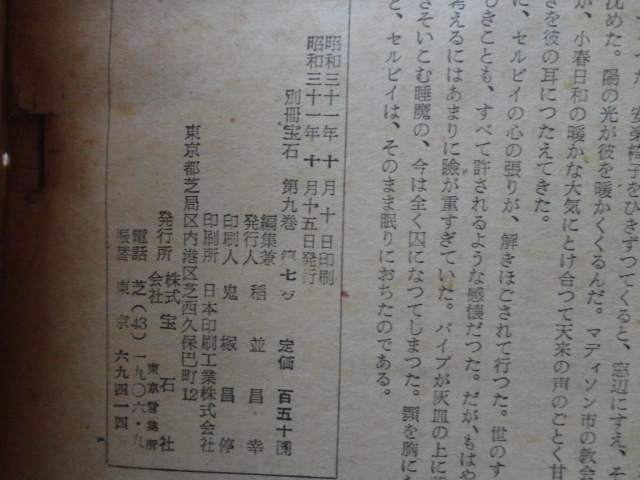 沈めた。陽の光が彼を暖かくくるんだ。マディソン市の教会
が、小春日和の暖かな大気にとけ合つて天来の声のごとく甘
きを彼の耳につたえてきた。
に、セルビイの心の張りが、解きほごされて行つた。世のす
しきことも、すべて許されるような感懐だつた。だが、もはや
考えるにはあまりに瞼が重すぎていた。パイプが灰皿の上に
さそいこむ睡魔の、今は全く囚になつてしまつた。顎を胸に
と、セルビイは、そのまま眠りにおちたのである。
昭和三十一年十月十日印刷
昭和三十一年十月十五日発行
別冊宝石 第九巻 第七号
定価 百五十圓
編集兼
発行人 稲並昌幸
印刷人 鬼塚昌停
印刷所 日本印刷工業株式会社
東京都芝局区内港区芝西久保巴町12
発行所 株式会社 宝石社
東京営業所
電話 芝(43)一九〇六・九
振替 東京 六九四一四